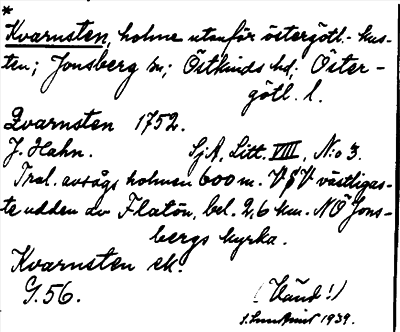 *
Kvarnsten, holme utanför östergötl.-kus-
ten; Jonsberg sn; Östkinds hd; Öster-
götl. l.
Qvarnsten 1752.
J. Hahn. SjA, Litt. VIII, N:o 3.
Trol. avsågs holmen 600 m. VSV västligas-
te udden av Flatön, bel. 2,6 km. NÖ Jons-
bergs kyrka.
Kvarnsten ek.
G. 56. (Vänd!)
1939.